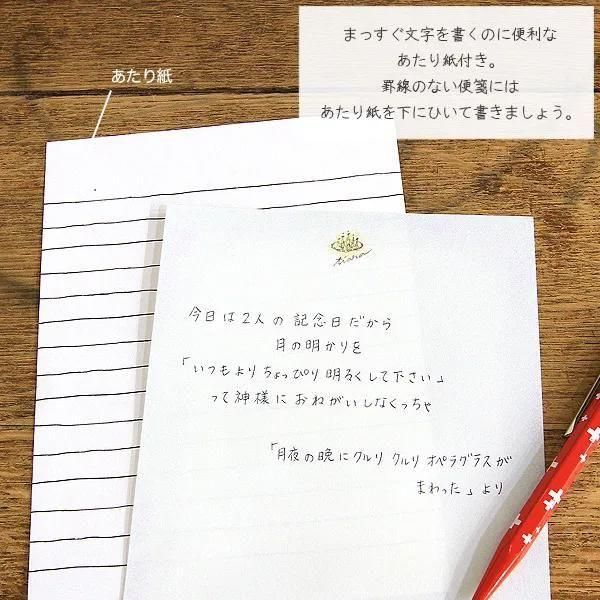 まっすぐ文字を書くのに便利な
あたり紙付き。
罫線のない便箋には
あたり紙を下にひいて書きましょう。
あたり紙
tiara
今日は2人の記念日だから
月の明かりを
「いつもよりちょっぴり明るくして下さい」
って神様におねがいしなくっちゃ
「月夜の晩にクルリ クルリ オペラグラスが
まわった」より